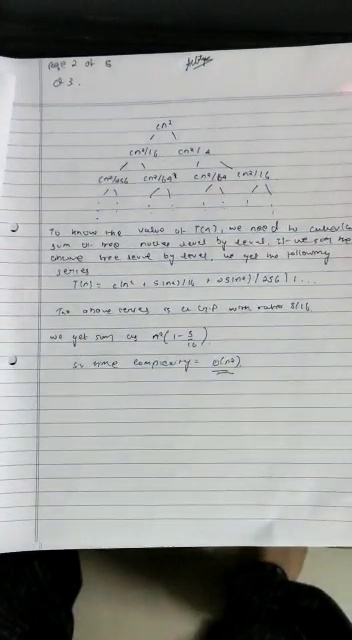 Page 2 of 6
Q 3.
cn²
cn²/16 cn²/4
cn²/256 cn²/64 cn²/64 cn²/16
To know the value of T(n), we need to calculate
sum of tree nodes level by level. If we sum the
above tree level by level, we get the following
series
T(n) = c(n² + 5(n²)/16 + 25(n²)/256) + ...
The above series is a G.P with ratio 5/16.
we get sum as n²(1 - 5/16)
so time complexity = O(n²)